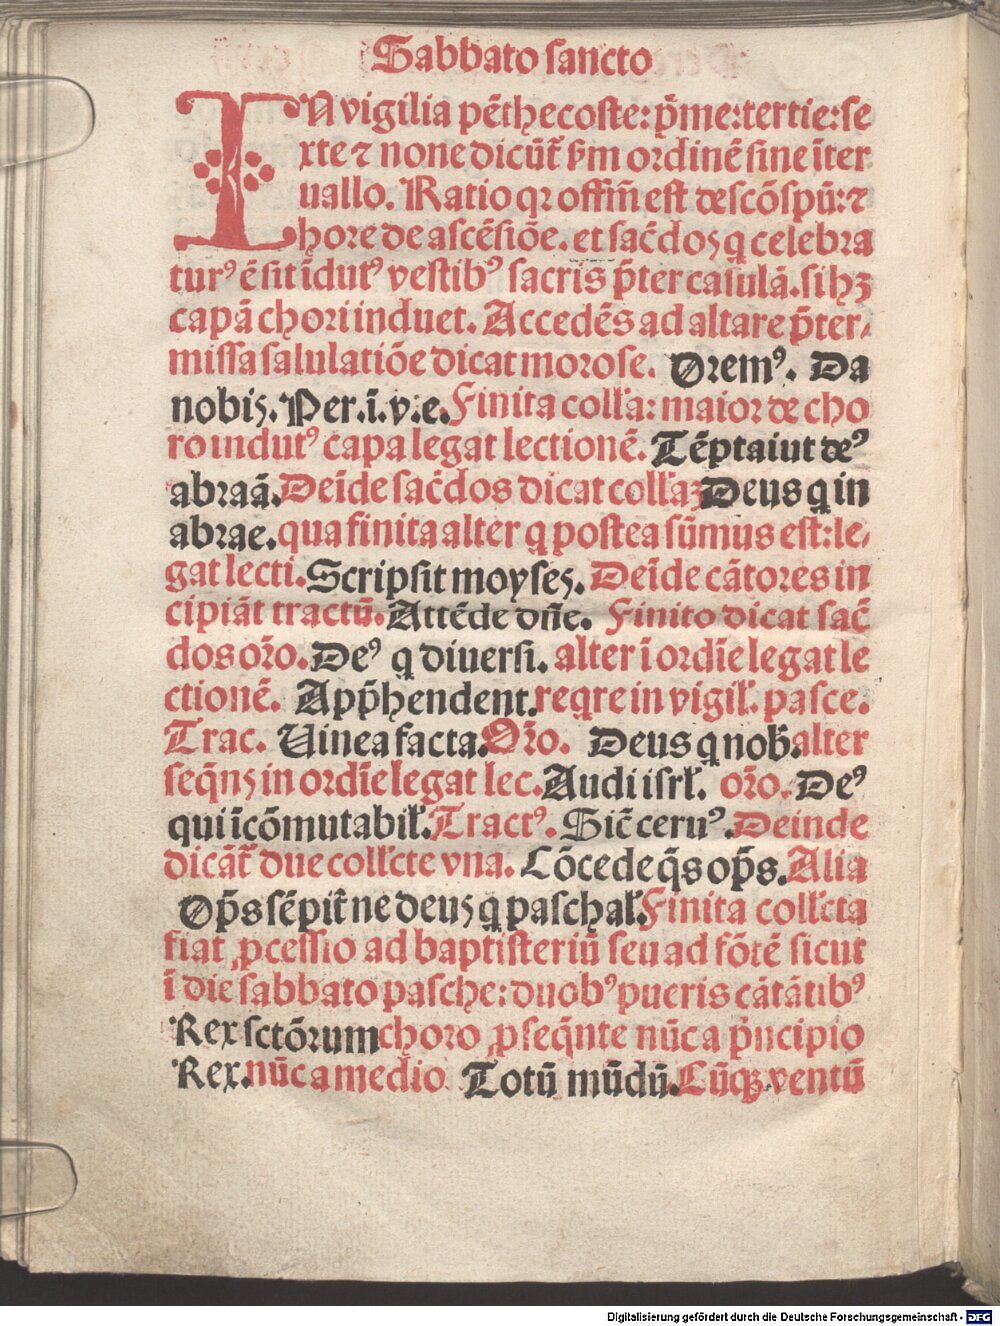 Sabbato sancto
IN vigilia pe᷃thecoste: p̃me: tertie: se
xte ⁊ none dicūt̃ s̃m ordinē sine īter
uallo. Ratio qꝛ offm̄ est descōspū: ⁊
hore de ascēsiōe. et sac̃dos q celebra
turꝰ ē sit īdutꝰ vestibꝰ sacris p̃ter casulā. si hꝫ
capā chori induet. Accedēs ad altare p̃ter⸗
missa salulatiōe dicat morose. Oremꝰ. Da
nobis. Per. i. v. e. Finita coll̃a: maior de cho
ro indutꝰ capa legat lectionē. Tēptaiut deꝰ
abraā. Deīde sac̃dos dicat coll̃aꝫ Deus q in
abrae. qua finita alter q postea sūmus est: le⸗
gat lecti. Scripsit moyses. Deīde cātores in
cipiāt tractū. Attēde dñe. Finito dicat sac̃
dos oro̅. Deꝰ q diuersi. alter ī ordīe legat le
ctionē. App̃hendent. reqre in vigil̃. pasce.
Trac. Uinea facta. Oro̅. Deus q nob̃. alter
seqñs in ordīe legat lec. Audi isrl̃. oro̅. Deꝰ
qui īcōmutabil̃. Tractꝰ. Sic̃ ceruꝰ. Deinde
dicāt̃ due coll̃cte vna. Cōcede q̃s op̃s. Alia
Op̃s sēpit̃ne deus q paschal̃. Finita coll̃cta
fiat ꝓcessio ad baptisteriū seu ad fōtē sicut
ī die sabbato pasche: duobꝰ pueris cātātibꝰ
Rex sctōrum choro ꝓseq̃nte nūc a p̃ncipio
Rex. nūc a medio Totū mūdū. Cūqꝫ ventū
Digitalisierung gefördert durch die Deutsche Forschungsgemeinschaft - DFG